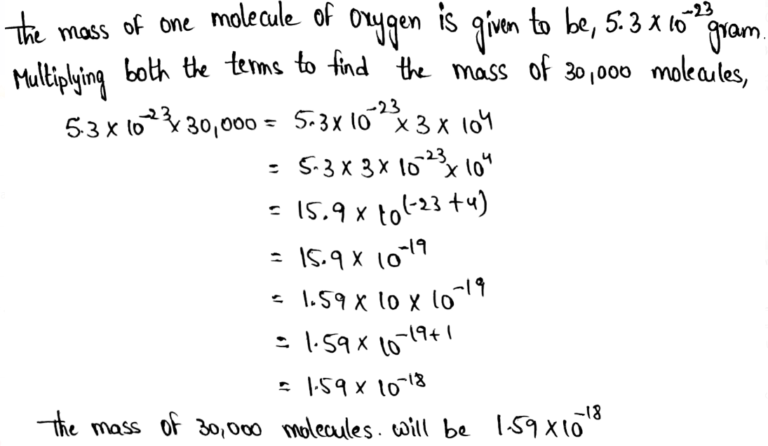 The mass of one molecule of oxygen is given to be, 5.3 × 10⁻²³ gram.
Multiplying both the terms to find the mass of 30,000 molecules,
5.3 × 10⁻²³ × 30,000 = 5.3 × 10⁻²³ × 3 × 10⁴
= 5.3 × 3 × 10⁻²³ × 10⁴
= 15.9 × 10⁽⁻²³ ⁺⁴⁾
= 15.9 × 10⁻¹⁹
= 1.59 × 10 × 10⁻¹⁹
= 1.59 × 10⁻¹⁹⁺¹
= 1.59 × 10⁻¹⁸
The mass of 30,000 molecules. will be 1.59 × 10⁻¹⁸